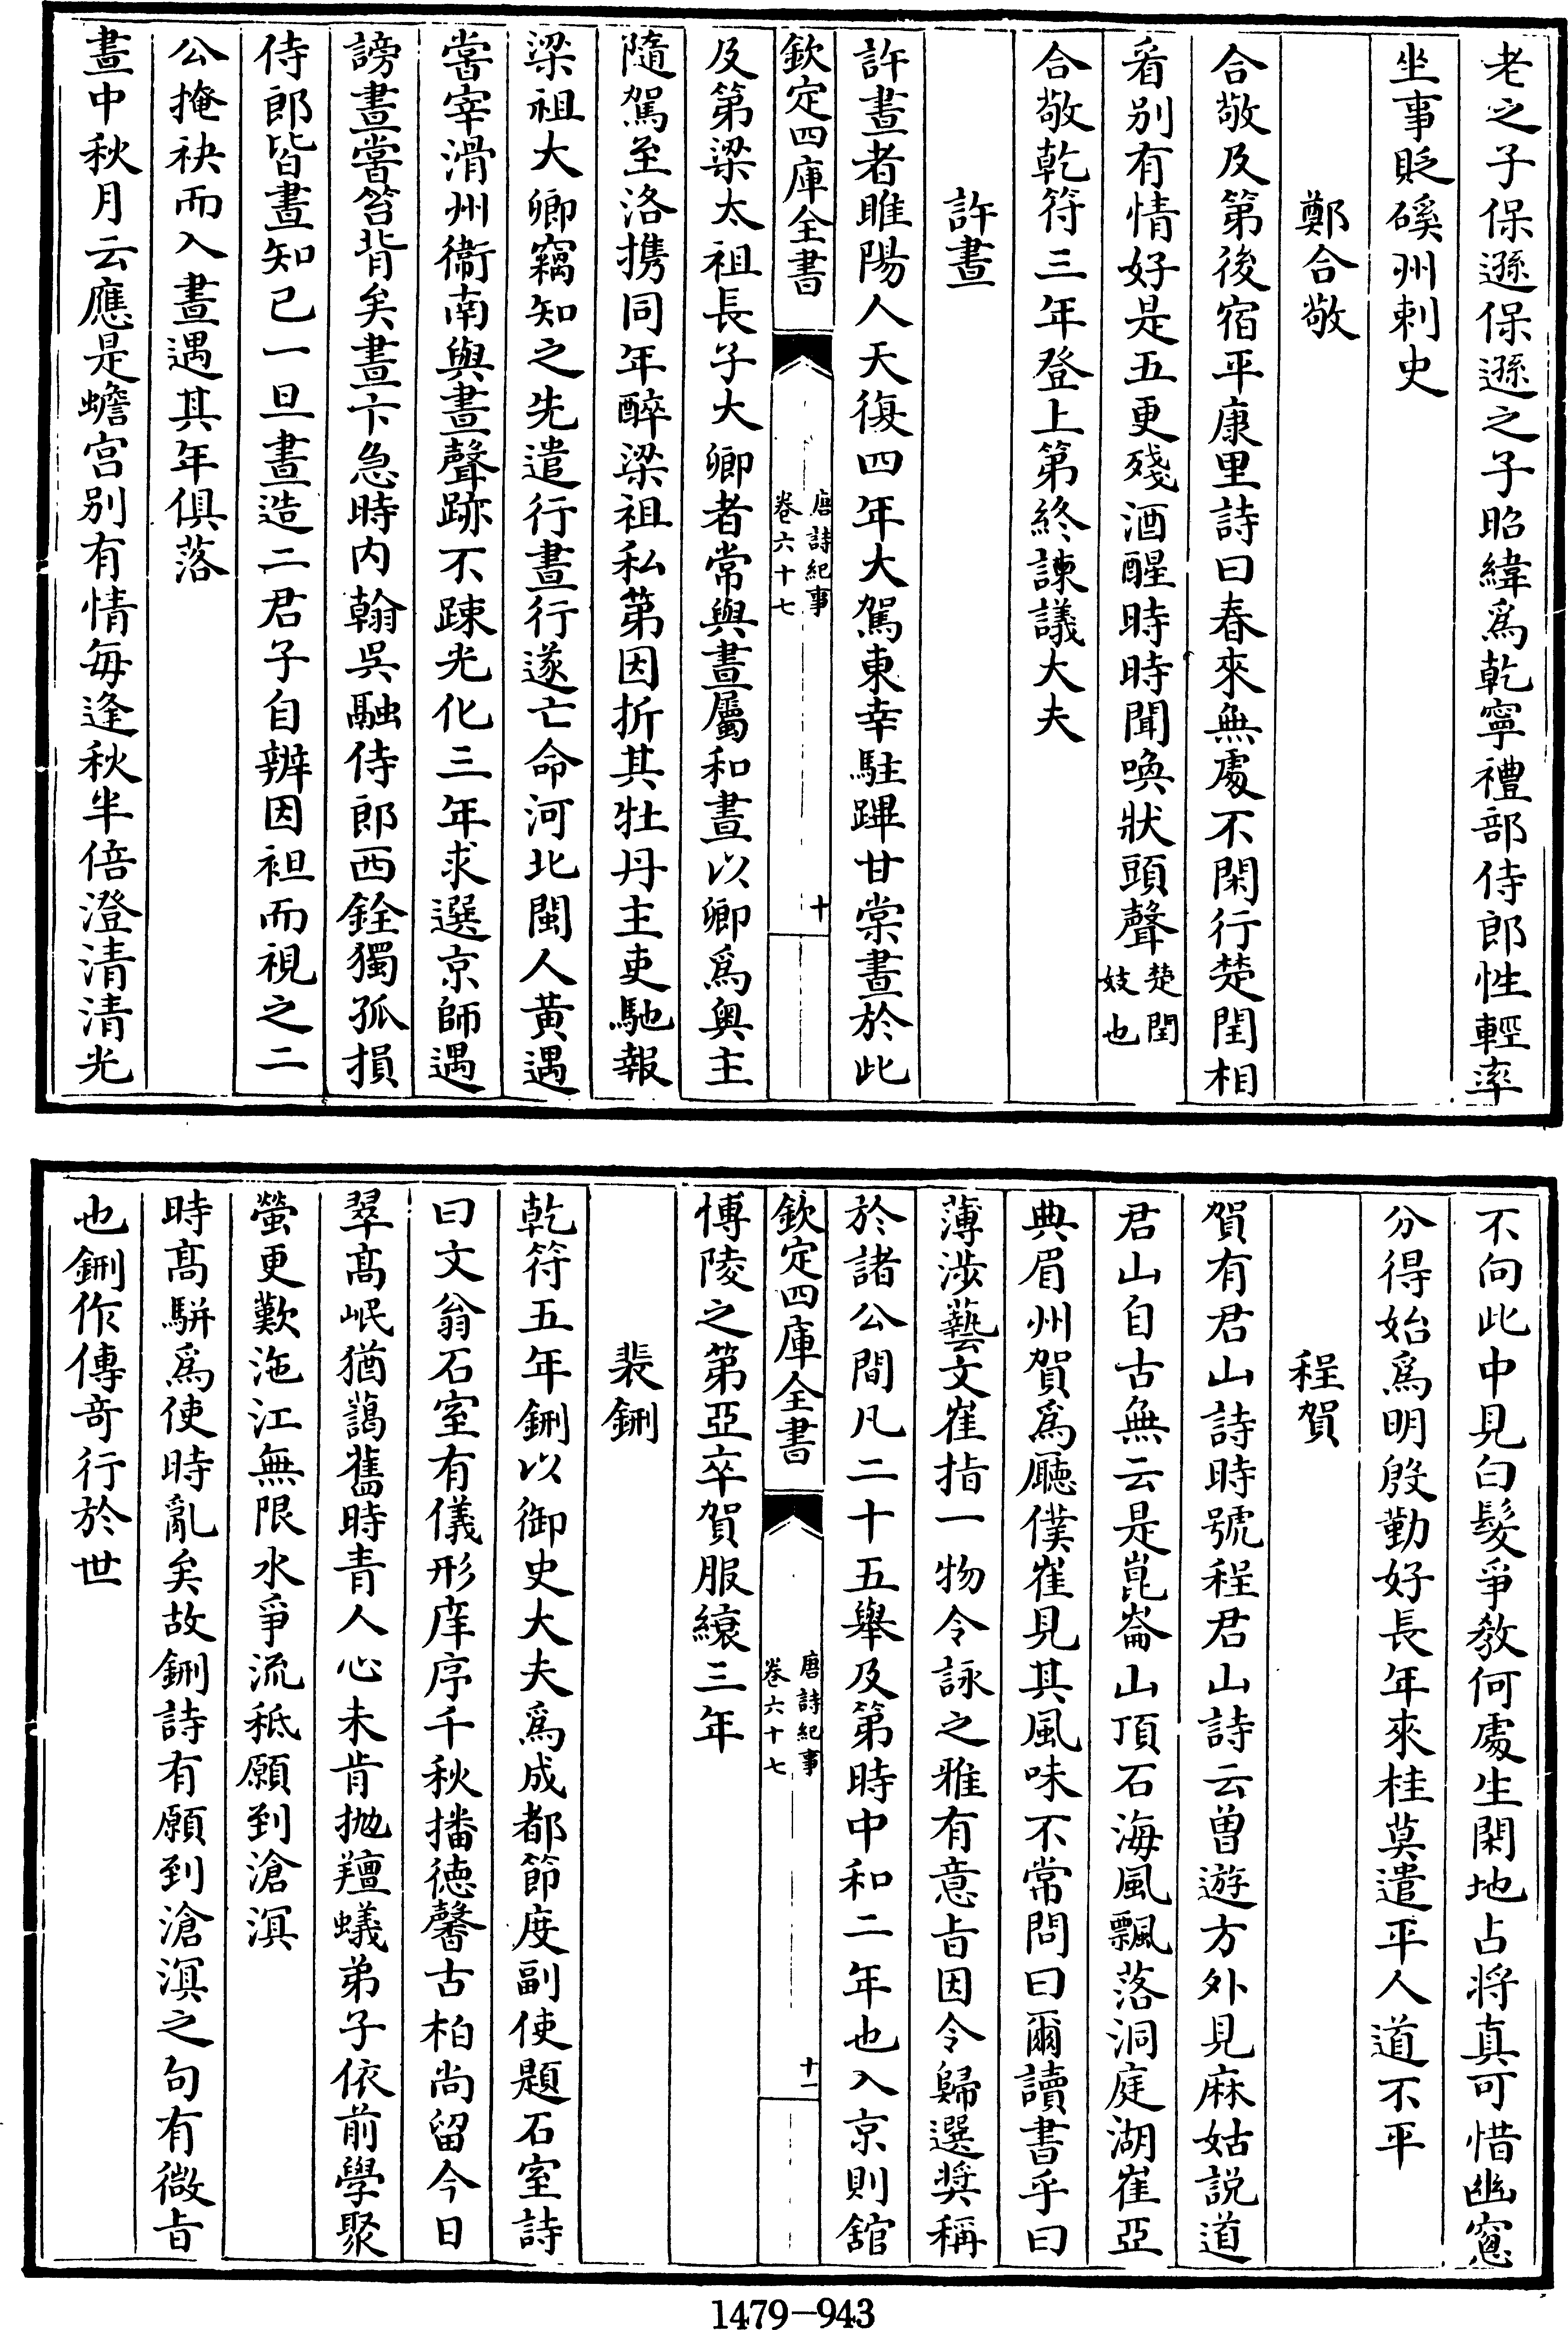 老之子保遜保遜之子昭緯爲乾寧禮部侍郎性輕率
坐事貶磎州刺史
鄭合敬
合敬及第後宿平康里詩曰春來無處不閑行楚閏相
看别有情好是五更殘酒醒時時聞喚狀頭聲楚閏妓也
合敬乾符三年登上第終諫議大夫
許晝
許晝者睢陽人天復四年大駕東幸駐蹕甘棠晝於此
欽定四庫全書
唐詩紀事
卷六十七
十
及第梁太祖長子大卿者常與晝屬和晝以卿爲奥主
隨駕至洛携同年醉梁祖私第因折其牡丹主吏馳報
梁祖大卿竊知之先遣行晝行遂亡命河北閩人黄遘
嘗宰滑州衞南與晝聲跡不踈光化三年求選京師遘
謗晝嘗笞背矣晝卞急時内翰呉融侍郎西銓獨孤損
侍郎皆晝知已一旦晝造二君子自辨因袒而視之二
公掩袂而入晝遇其年俱落
晝中秋月云應是蟾宫别有情每逢秋半倍澄清清光
不向此中見白髮爭教何處生閑地占將真可惜幽窻
分得始爲明殷勤好長年來桂莫遣平人道不平
程賀
賀有君山詩時號程君山詩云曾遊方外見麻姑説道
君山自古無云是崑崙山頂石海風飄落洞庭湖崔亞
典眉州賀爲廳僕崔見其風味不常問曰爾讀書乎曰
薄涉藝文崔指一物令詠之雅有意旨因令歸選奬稱
於諸公間凡二十五舉及第時中和二年也入京則舘
欽定四庫全書
唐詩紀事
卷六十七
十一
博陵之第亞卒賀服縗三年
裴鉶
乾符五年鉶以御史大夫爲成都節度副使題石室詩
曰文翁石室有儀形庠序千秋播德馨古柏尚留今日
翠髙岷猶藹舊時青人心未肯抛羶蟻弟子依前學聚
螢更歎沲江無限水爭流秪願到滄溟
時髙駢爲使時亂矣故鉶詩有願到滄溟之句有微旨
也鉶作傳竒行於世
1479-943